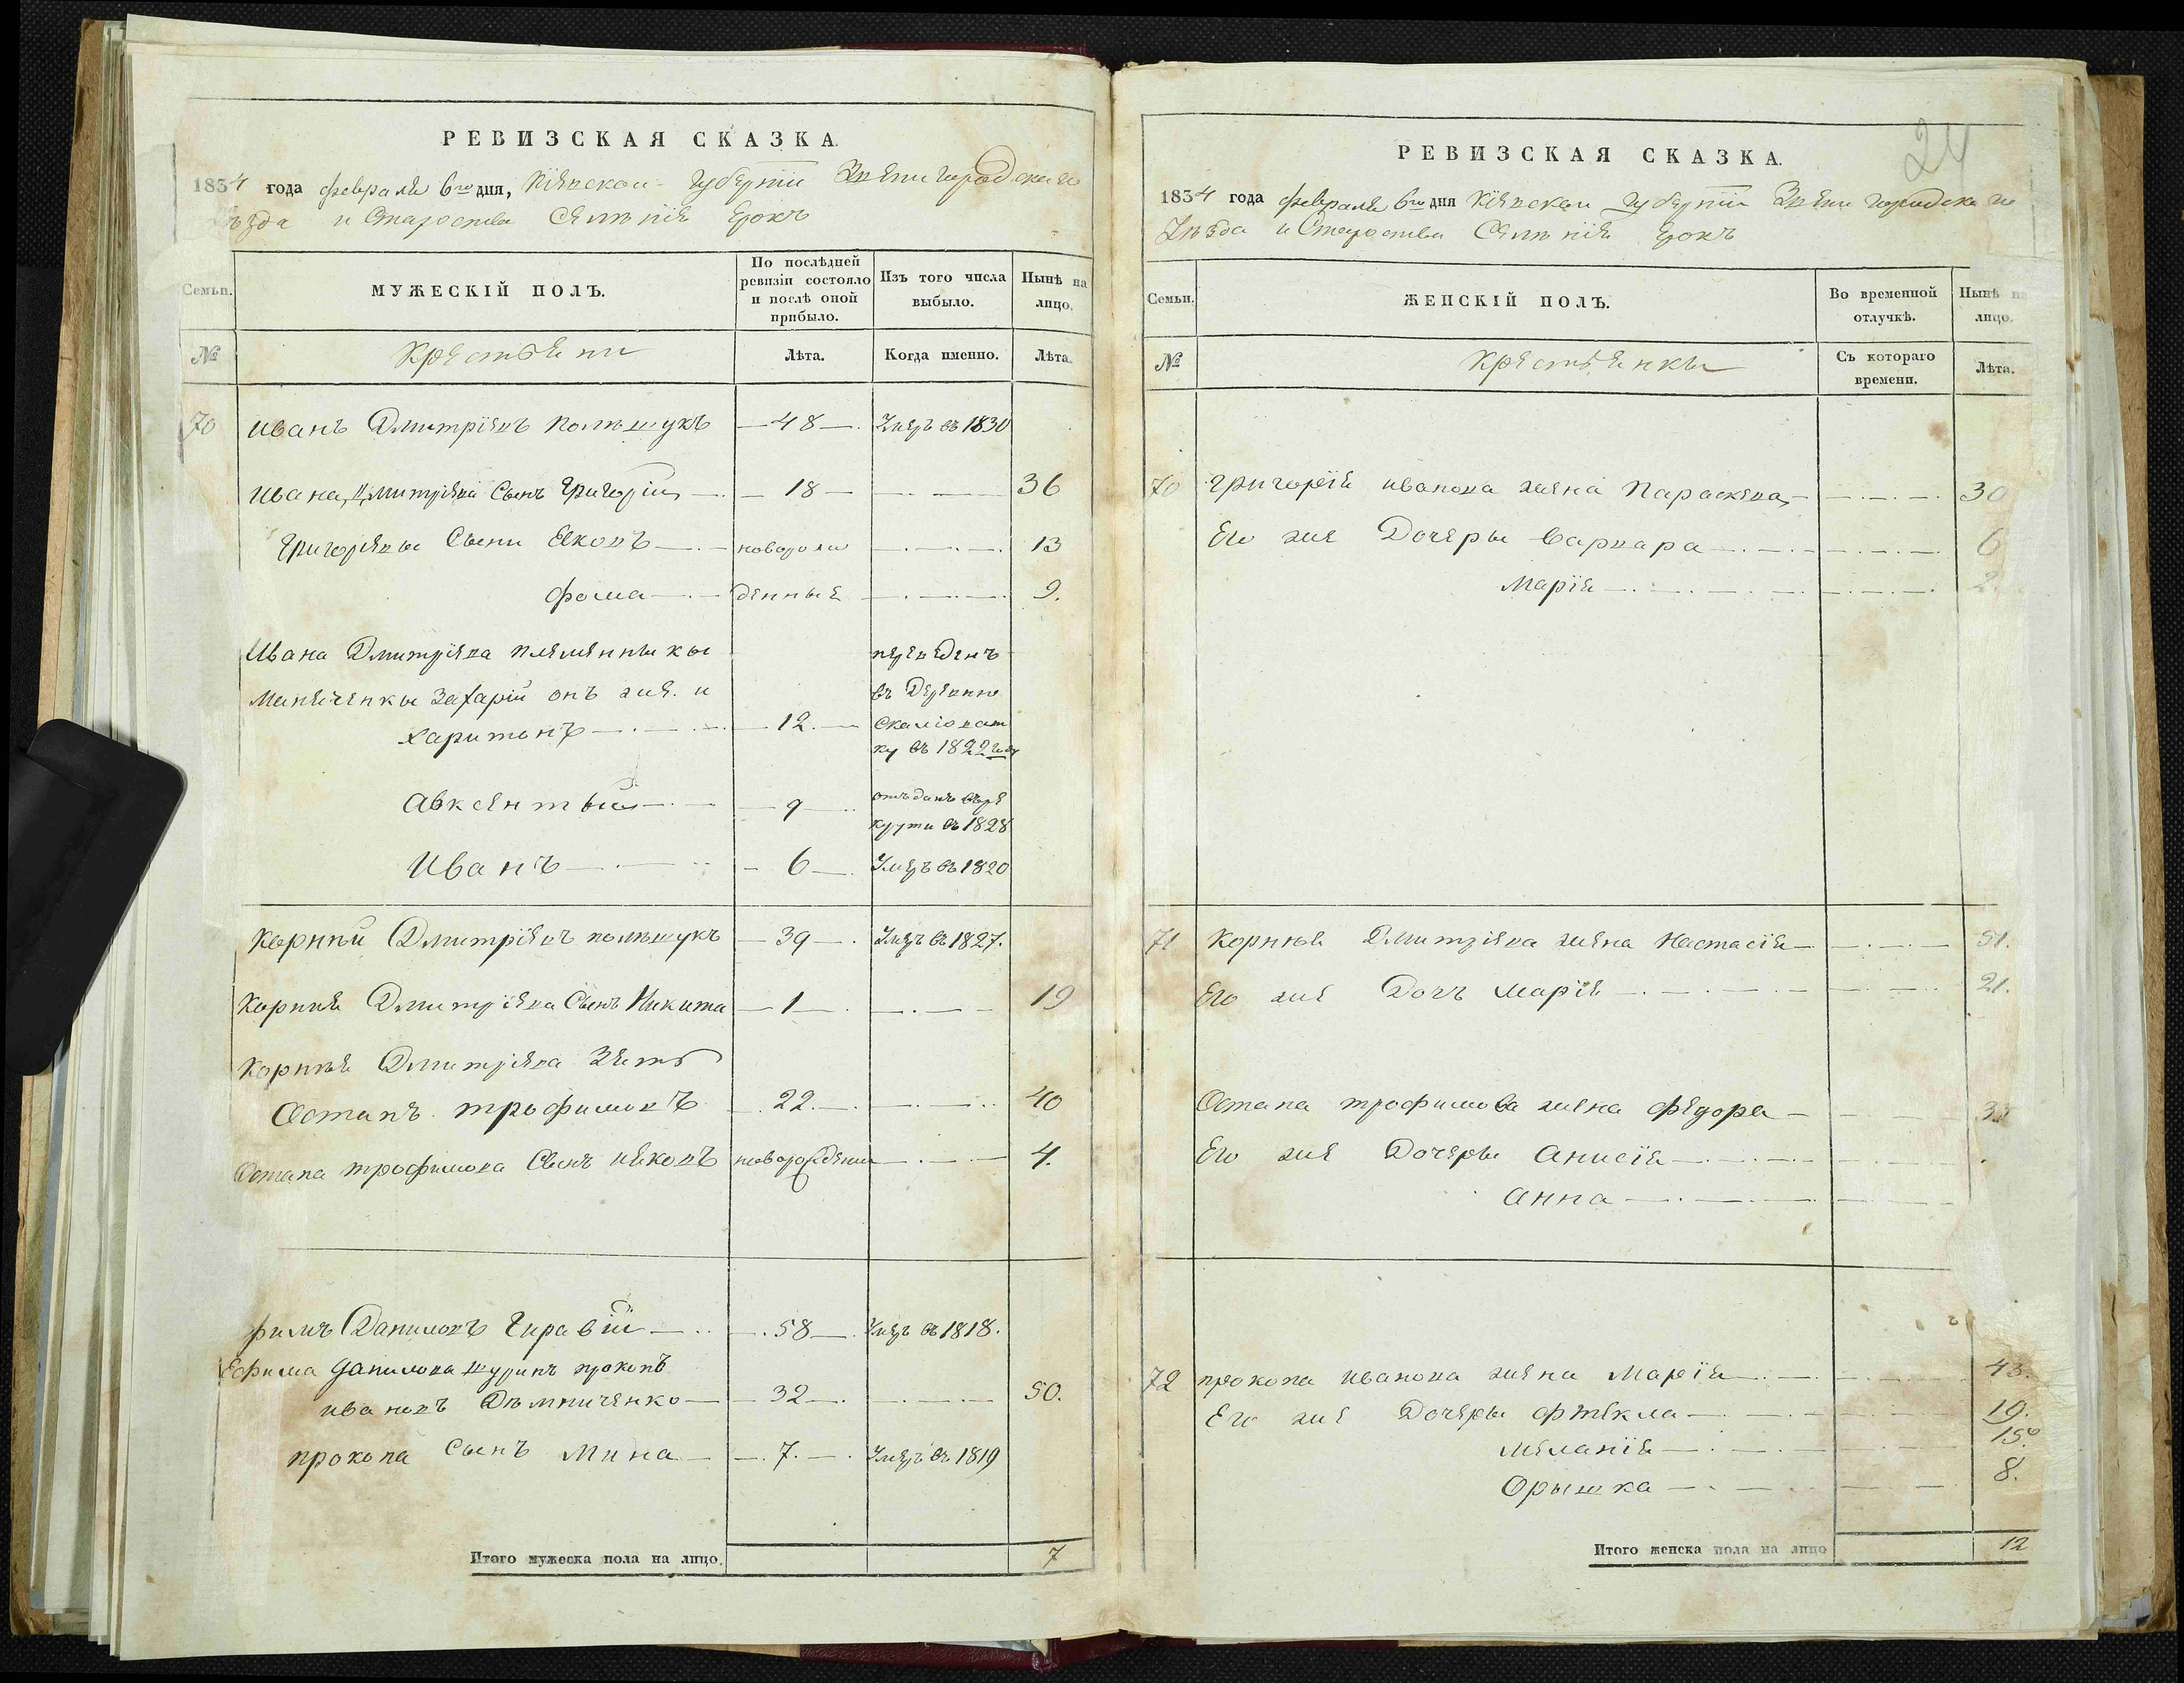 РЕВИЗСКАЯ СКАЗКА.
1834 года февраля 6го дня, Кіевской Губерніи Звенигородскаго
уѣзда и Староства Селѣнія Ерокъ
Семьи.
МУЖЕСКІЙ ПОЛЪ.
По послѣдней ревизіи состояло и послѣ оной прибыло.
Изъ того числа выбыло.
Нынѣ на лицо.
№
Крестьяни
Лѣта.
Когда именно.
Лѣта.
70 Иванъ Дмитріевъ Полѣшукъ — 48 — Умеръ въ 1830
Ивана Дмитріева Сынъ Григорій — 18 — 36
Григоріевы Сыни Яковъ — новорож 13
фома — денныя 9.
Ивана Дмитріева племянники переведенъ
Захарій онъ же и въ Деревню
Харитонъ — 12. —
ку въ 1822 году
Авксентій — 9 — отъданъ въ ре
крути въ 1828
Иванъ — 6 — Умеръ въ 1820
Корнѣй Дмитріевъ полѣшукъ — 39 — Умеръ въ 1827.
Корнія Дмитріева Сынъ Никита — 1 — 19
Корнѣя Дмитріева Зять
Остапъ трофимовъ 22. — 40
Остапа трофимова Сынъ Яковъ новорожденны 4.
фимъ Даниловъ Гиравій — 58 — Умеръ въ 1818.
Ефима Данилова шуринъ прокопъ
ивановъ Дѣмниченко — 32 — 50.
прокопа Сынъ Мина — 7. — Умеръ въ 1819
Итого мужеска пола на лицо. 7
24
РЕВИЗСКАЯ СКАЗКА.
1834 года февраля 6го дня Кіевской Губерніи Звенигородскаго
Уѣзда и Староства Селѣнія Ерокъ
Семьи.
ЖЕНСКІЙ ПОЛЪ.
Во временной отлучкѣ.
Нынѣ на лицо.
№
Крестьянкы
Съ котораго времени.
Лѣта.
70 Григорія иванова жена Параскева — 30
Его же Дочеры Варвара — 6
Марія — 2
71 Корнѣя Дмитріева жена Настасія — 51.
Его же Дочь Марія — 21.
Остапа трофимова жена фѣдора —
Его же Дочеры Анисія —
Анна —
72 прокопа иванова жена Марія — 43.
Его же Дочеры Фтѣкла — 19.
Меланія — 15.
Орышка — 8.
Итого женска пола на лицо 12